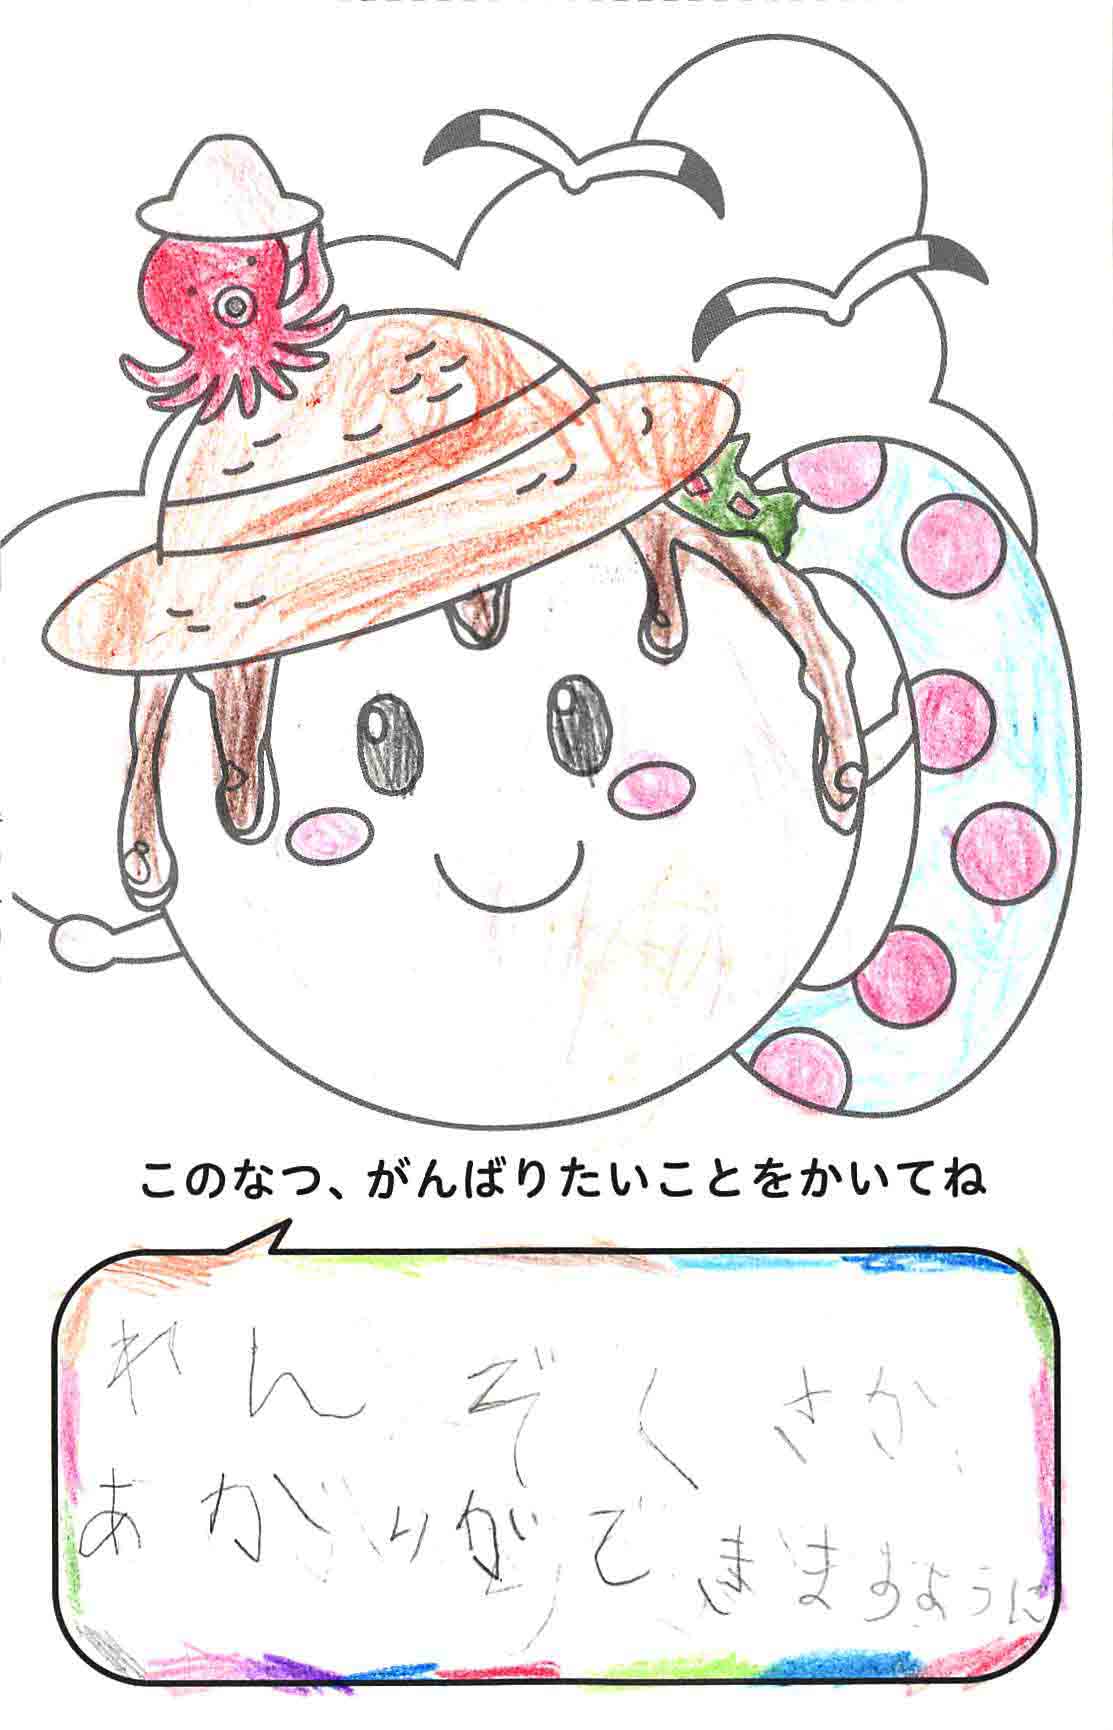 このなつ、がんばりたいことをかいてね
れんぞくさか
あがりができますように